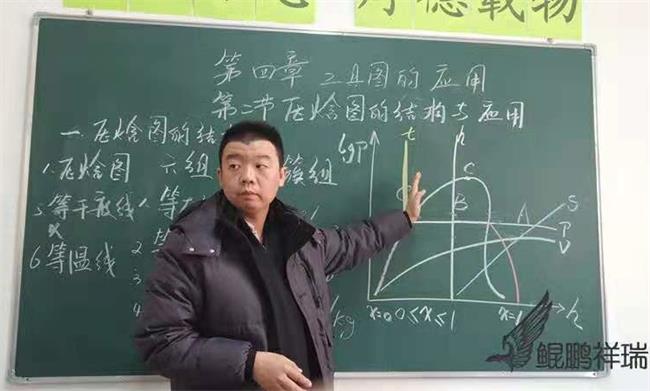 厚德载物
第四章 工具图的应用
第二节 压焓图的结构与应用
一.压焓图的结
1.压焓图 六组 簇组
5.等干度线 1.等
x
6.等温线 2
3
4 kg
lgP t h
C
B A S
P
V
x=0 0≤x≤1 x=1 h
鲲鹏祥瑞